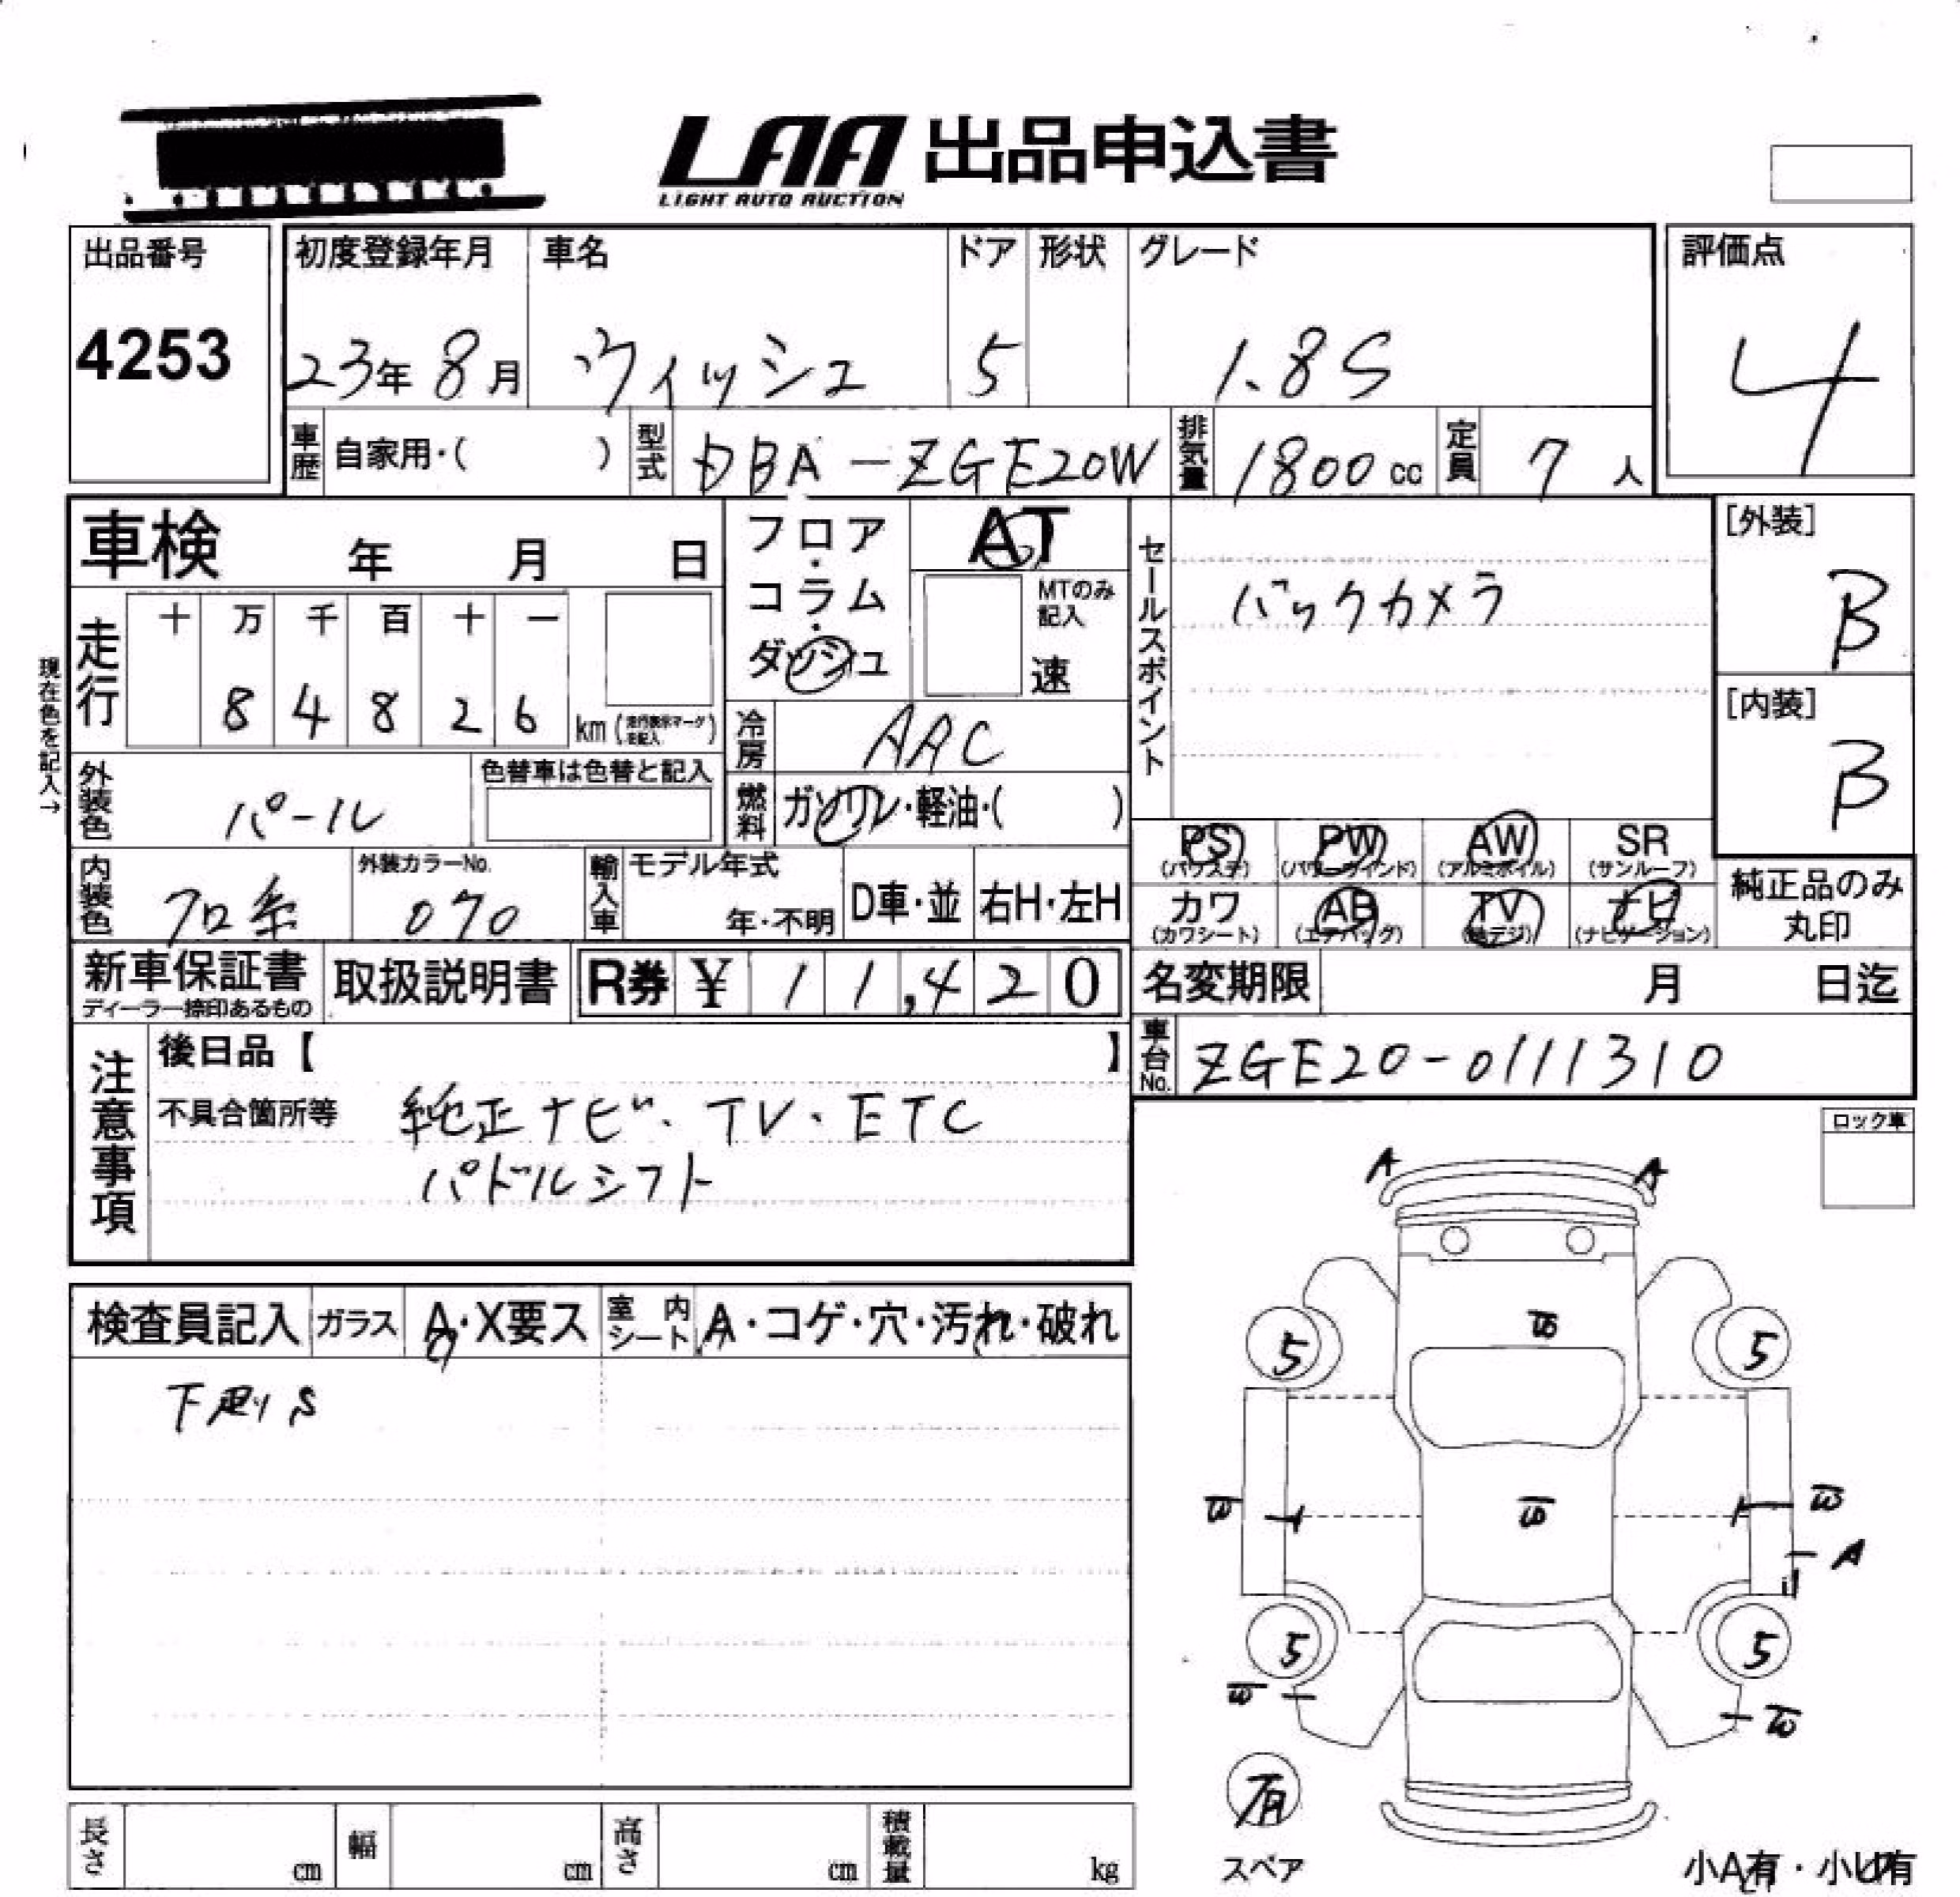 LAA 出品申込書
LIGHT AUTO AUCTION
出品番号
4253
初度登録年月
23年 8月
車名
ウィッシュ
ドア
5
形状
グレード
1.8S
評価点
4
車歴 自家用・( )
型式 DBA-ZGE20W
排気量 1800 cc
定員 7 人
車検 年 月 日
フロア・コラム・ダッシュ
AT
MTのみ記入
速
セールスポイント
バックカメラ
[外装]
B
[内装]
B
現在色を記入→
走行
十 万 千 百 十 一
8 4 8 2 6
km (走行表示マークを記入)
冷房 AAC
燃料 ガソリン・軽油・( )
外装色 パール
色替車は色替と記入
内装色 クロ系
外装カラーNo.
070
輸入車
モデル年式
年・不明
D車・並
右H・左H
PS (パワステ)
PW (パワーウィンド)
AW (アルミホイル)
SR (サンルーフ)
カワ (カワシート)
AB (エアバッグ)
TV (地デジ)
ナビ (ナビゲーション)
純正品のみ丸印
新車保証書
ディーラー捺印あるもの
取扱説明書
R券 ¥ 11,420
名変期限 月 日迄
車台No. ZGE20-0111310
注意事項
後日品【 】
不具合箇所等 純正ナビ・TV・ETC
パドルシフト
ロック車
検査員記入
ガラス A・X要ス
室内シート A・コゲ・穴・汚れ・破れ
A A
W
5 5
W W W
A
5 5
W W
有
スペア
小A有・小U有
長さ cm
幅 cm
高さ cm
積載量 kg